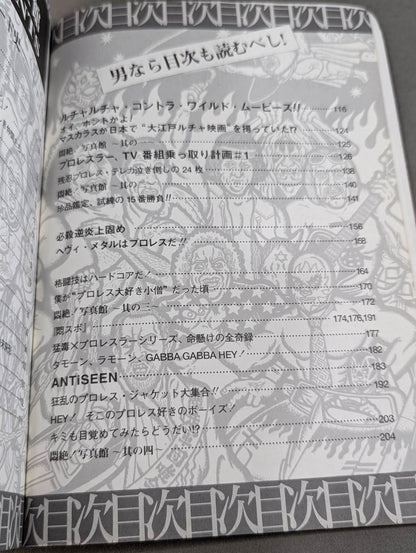 目次目次目次
男なら目次も読むべし!
ルチャルチャ・コントラ・ワイルド・ムービーズ!! 116
オイ、ホントかよ!
マスカラスが日本で“大江戸ルチャ映画”を撮っていた!? 124
悶絶!写真館 〜其の一〜 125
プロレスラー、TV番組乗っ取り計画#1 126
残忍プロレス・テレカ泣き倒しの24枚 138
悶絶!写真館 140
珍品鑑定、試練の15番勝負!! 141
必殺逆炎上固め 156
ヘヴィ・メタルはプロレスだ!! 158
格闘技はハードコアだ! 164
僕が“プロレス大好き小僧”だった頃 170
悶絶!写真館 〜其の三〜 172
『悶スポ』 174,176,191
猛毒×プロレスラーシリーズ、命懸けの全奇録 177
タモーン、ラモーン、GABBA GABBA HEY! 182
ANTiSEEN 183
狂乱のプロレス・ジャケット大集合!! 192
HEY! そこのプロレス好きのボーイズ!
キミも目覚めてみたらどうだい!? 203
悶絶!写真館 〜其の四〜 204
目次目次目次目次